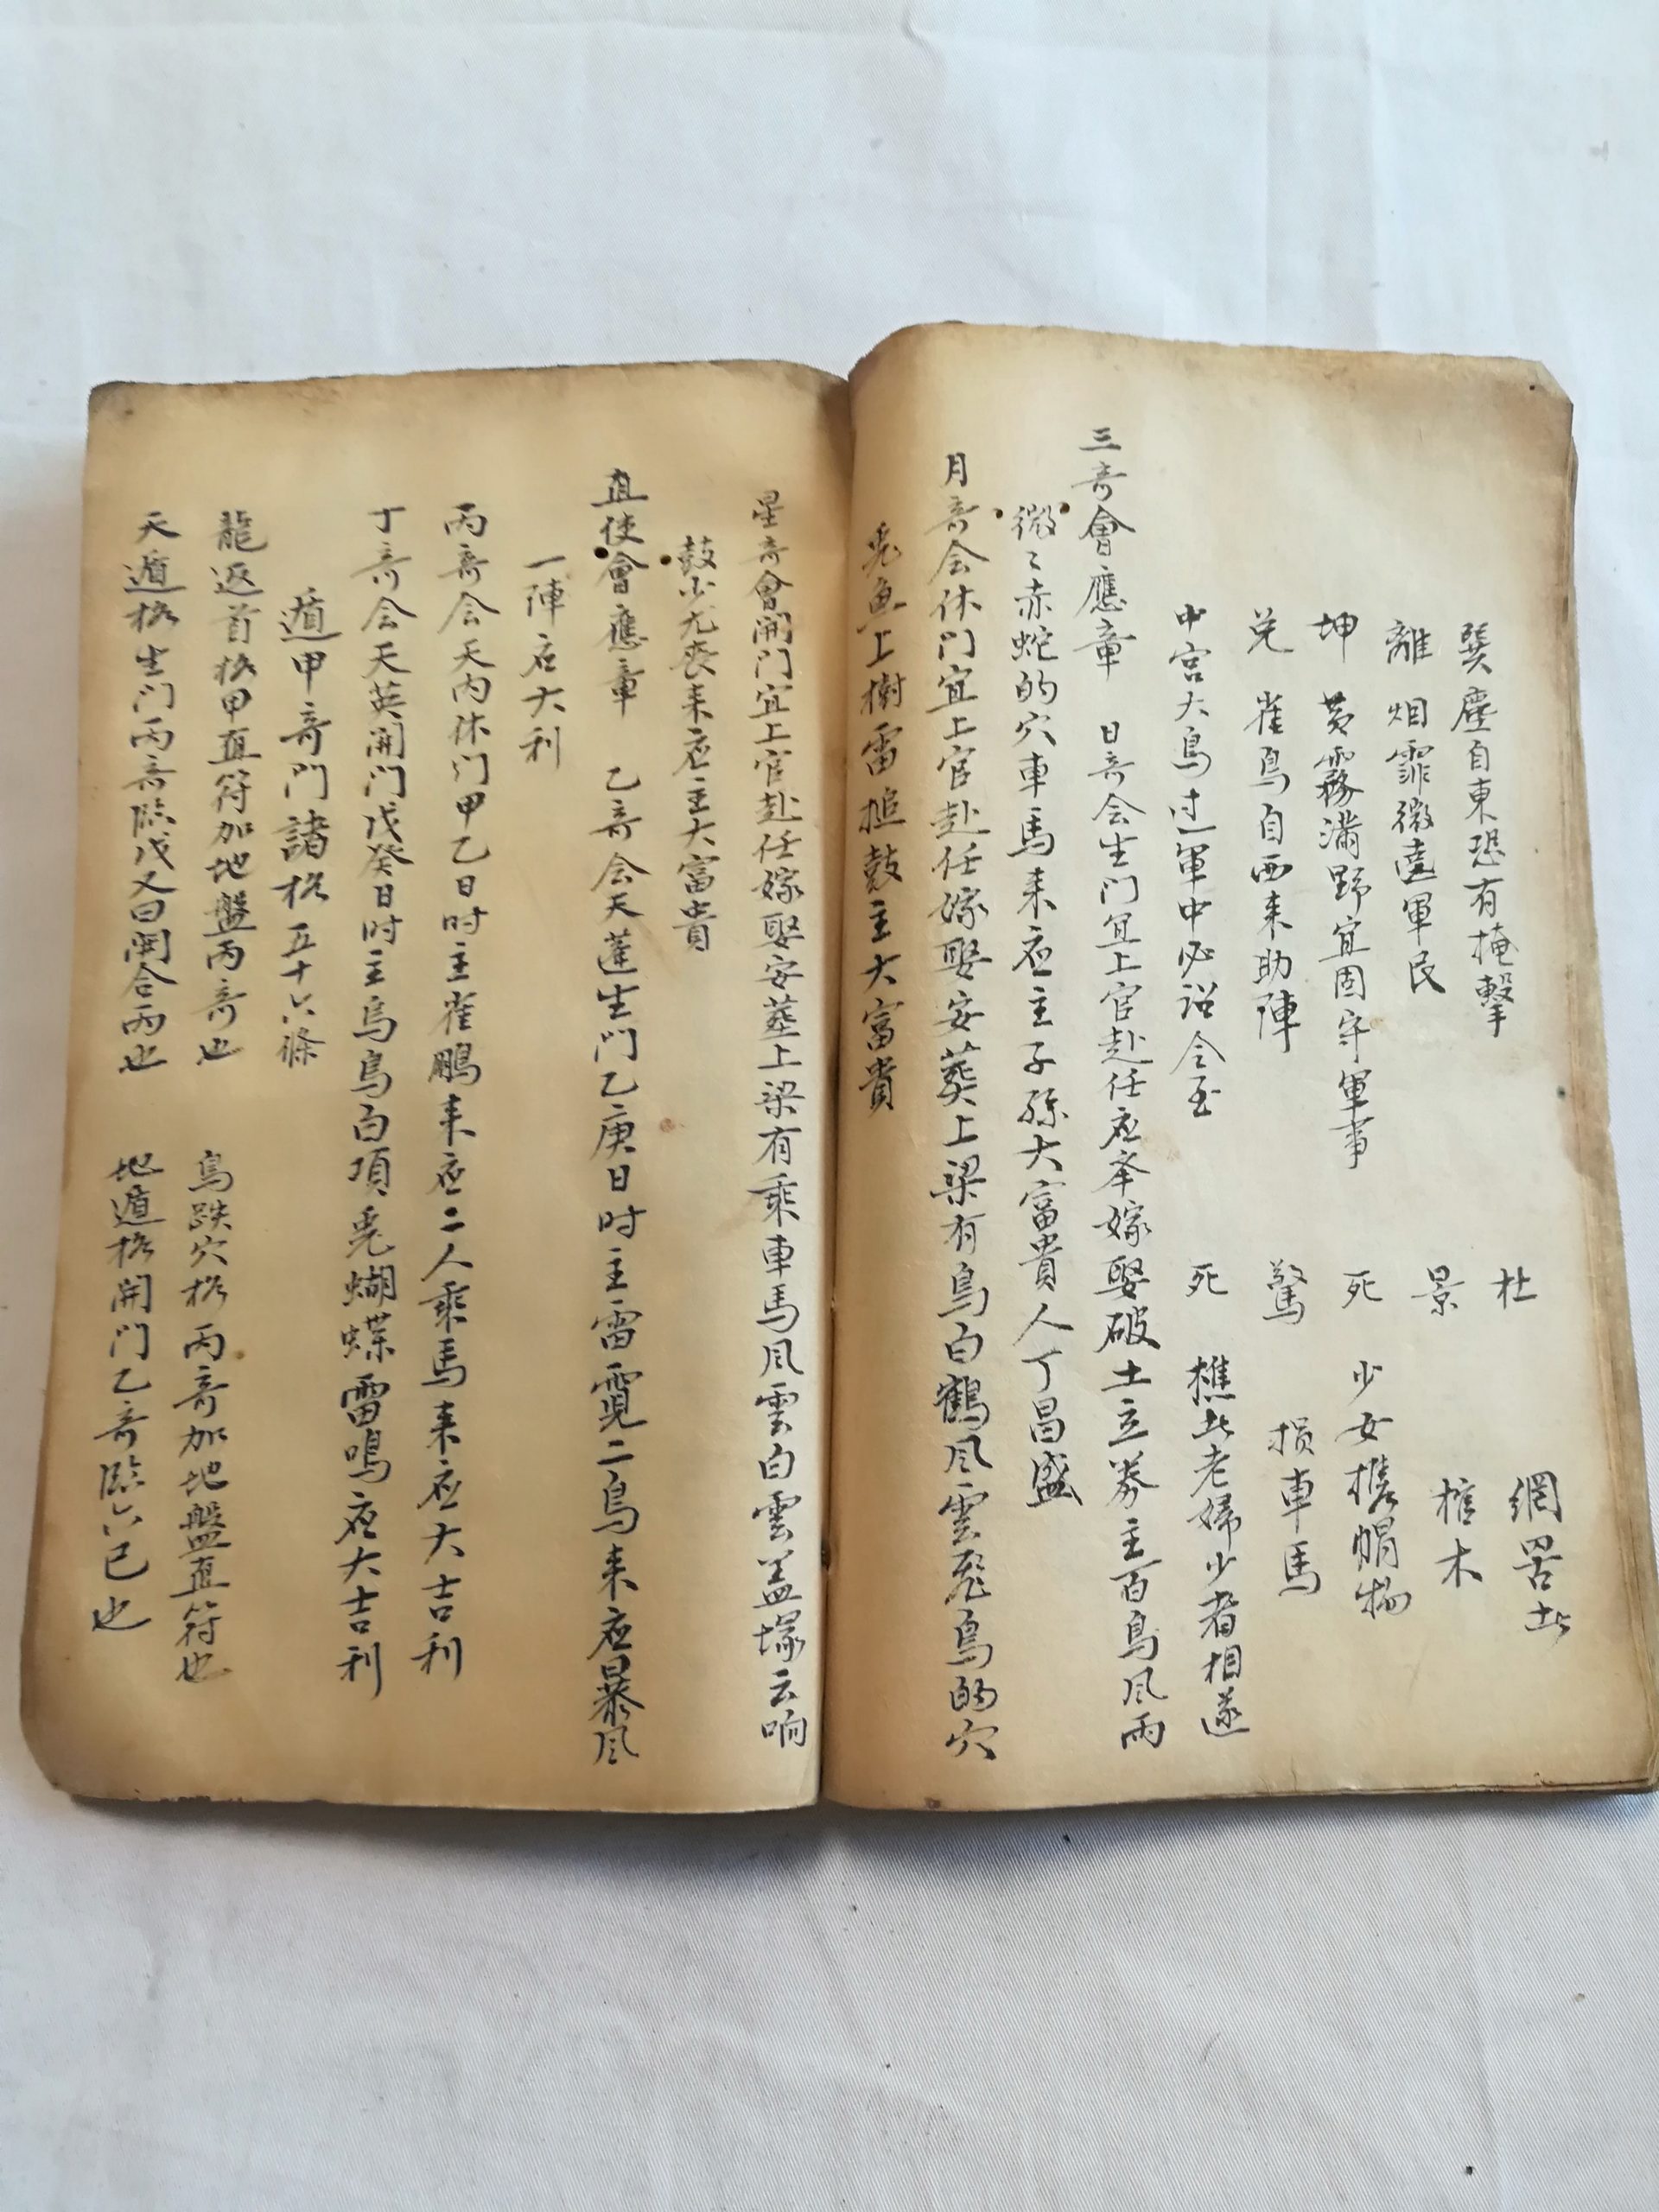 巽塵自東恐有掩擊 杜 網罟北
離 烟霏微遶軍民 景 棺木
坤 黃霧滿野宜固守軍事 死 少女携帽物
兌 雀鳥自西来助陣 驚 损車馬
中宮大鳥过軍中必詔令至 死 樵北老婦少者相遂
三奇會應章 日奇会生门宜上官赴任应举嫁娶破土立券主百鳥风雨
微々赤蛇的穴車馬来应主子孫大富貴人丁昌盛
月奇会休门宜上官赴任嫁娶安葬上梁有鳥白鶴风雲飛鳥的穴
兎魚上樹雷搥鼓主大富貴
星奇會開门宜上官赴任嫁娶安葬上梁有乘車馬风雲白雲盖塚云响
鼓少尤喪来应主大富貴
直使會應章 乙奇会天蓬生门乙庚日时主雷霓二鳥来应暴风
一陣应大利
丙奇会天内休门甲乙日时主雀鵬来应二人乘馬来应大吉利
丁奇会天英開门戊癸日时主烏烏白項兎蝴蝶雷鳴应大吉利
遁甲奇門諸格五十六條
龍返首格甲直符加地盤丙奇也 鳥跌穴格丙奇加地盤直符也
天遁格生门丙奇臨戊又曰開合丙也 地遁格開门乙奇臨六己也